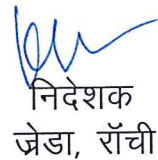 निदेशक
ज्रेडा, रॉंची